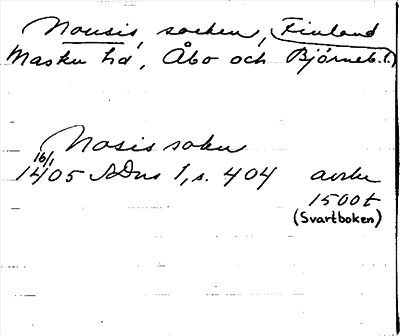 Nousis, socken, Finland
Masku hd, Åbo och Björneb. l.
Nosis sokn
16/1
1405 SDns 1, s. 404 avskr
1500t
(Svartboken)